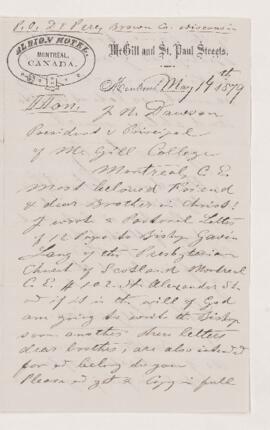 P.O. De Pere, Brown Co. Wisconsin
ALBION HOTEL,
MONTREAL,
CANADA.
McGill and St. Paul Streets,
Montreal, May 19th 1879
Hon. J. W. Dawson
President & Principal
of McGill College
Montreal, C. E.
most beloved Friend
& dear Brother in Christ!
I wrote a Pastoral Letter
of 12 Pages to Bishop Gavin
Lang of the Presbyterian
Church of Scotland Montreal
C. E. # 102. St Alexander St.
& if it is the will of God
am going to write the Bishop
soon another. These letters
dear brother, are also intended
for & belong to you.
Please & get a Copy in full